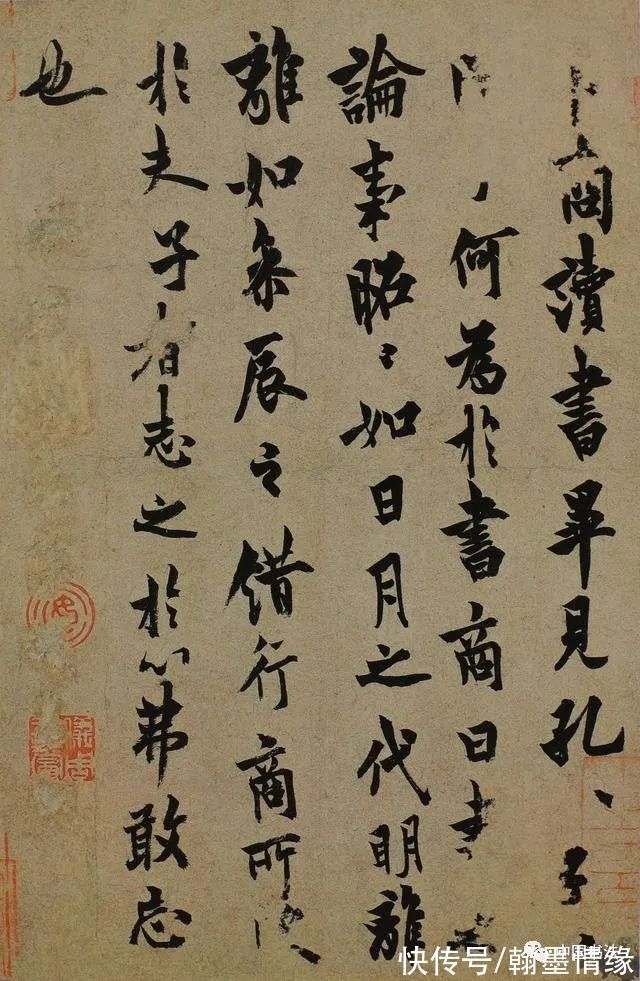 卜商讀書畢見孔〻子〻
何為於書商曰書之
論事昭〻如日月之代明離
離如參辰之錯行商所受
於夫子者志之於心弗敢忘
也
中国书法
快传号/翰墨情缘